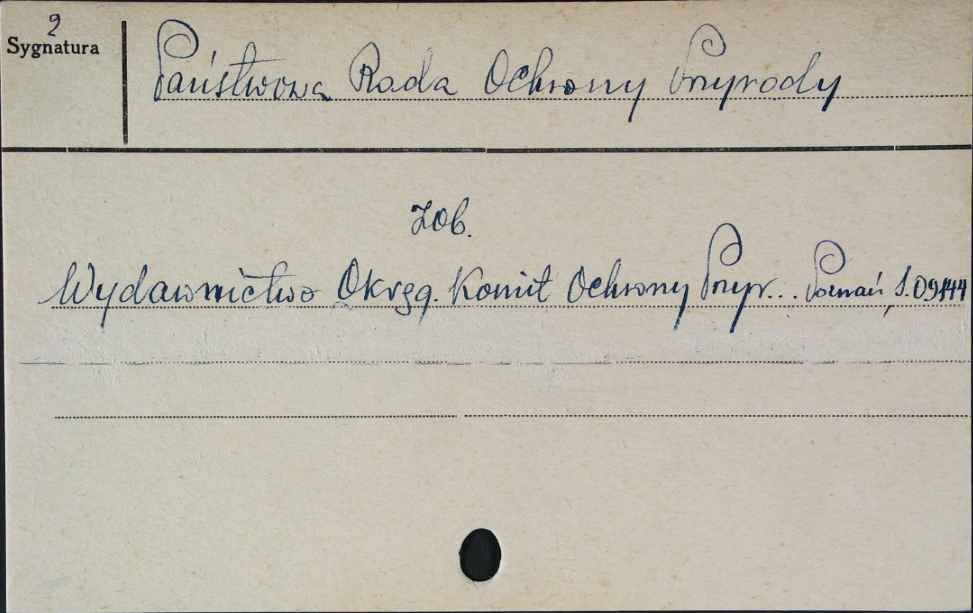 2
Sygnatura
Państwowa Rada Ochrony Przyrody
Zob.
Wydawnictwo Okręg. Komit Ochrony Przyr... Poznań, S.09144